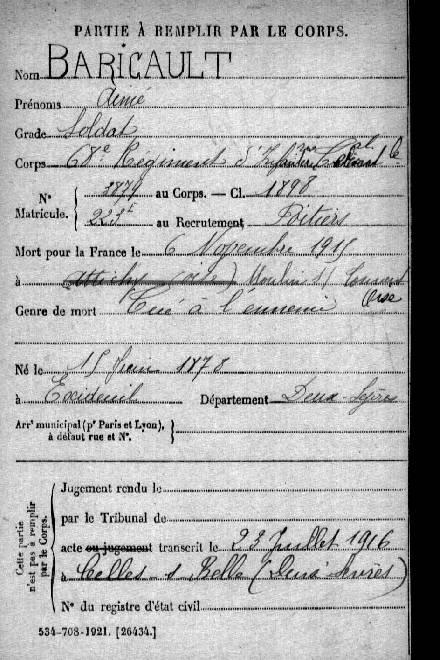 PARTIE À REMPLIR PAR LE CORPS.
Nom BARICAULT
Prénoms Aimé
Grade Soldat
Corps 68e Régiment d'Infanterie
N° Matricule. 3879 au Corps. — Cl. 1898
223 au Recrutement Poitiers
Mort pour la France le 6 Novembre 1915
à Attichy (Oise) Moulin ss Touvent Oise
Genre de mort Tué à l'ennemi
Né le 15 Juin 1878
à Exideuil Département Deux-Sèvres
Arrt municipal (pr Paris et Lyon), à défaut rue et N°.
Cette partie n'est pas à remplir par le Corps.
Jugement rendu le
par le Tribunal de
acte ou jugement transcrit le 23 Juillet 1916
à Celles s Belle (Deux Sèvres)
N° du registre d'état civil
534-708-1921. [26434.]